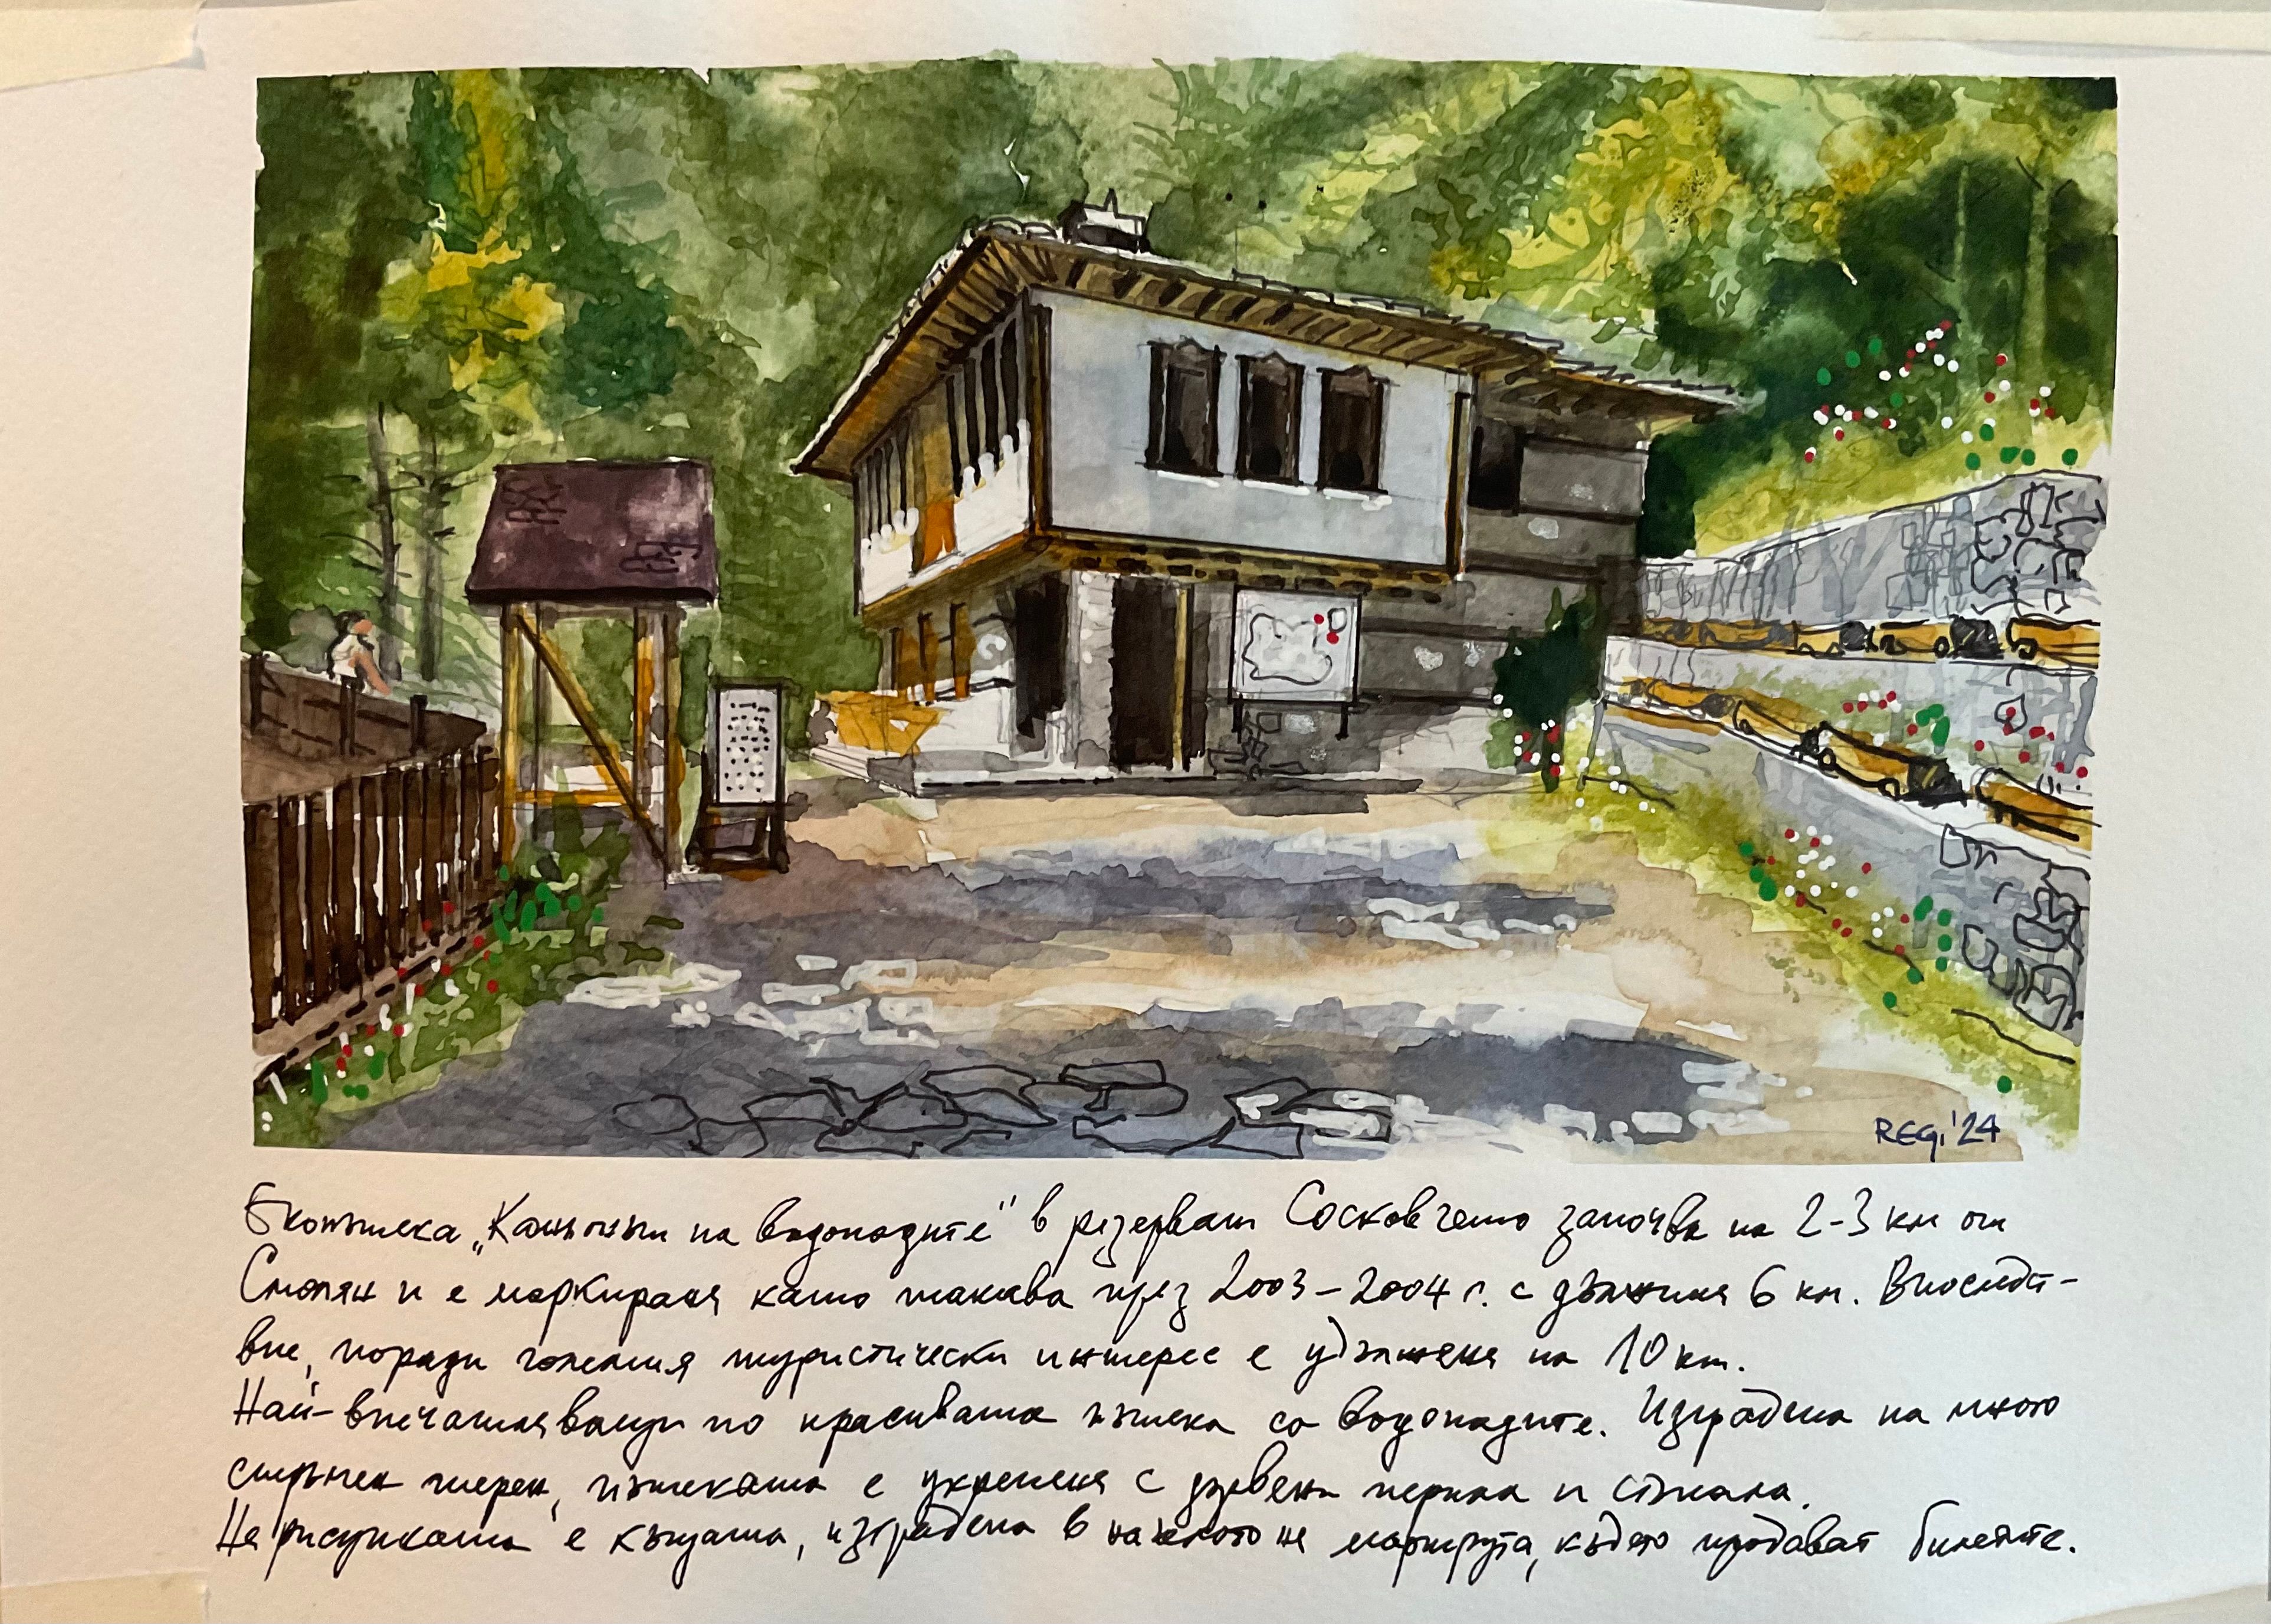 REGI '24
Екопътека „Каньонът на водопадите" в резерват Сосковчето започва на 2-3 км от
Смолян и е маркирана като такава през 2003-2004 г. с дължина 6 км. Впоследст-
вие, поради големия туристически интерес е удължена на 10 км.
Най-впечатляващи по красивата пътека са водопадите. Изградена на много
стръмен терен, пътеката е укрепена с дървени перила и стъпала.
На рисунката е къщата, изградена в началото на маршрута, където продават билети.